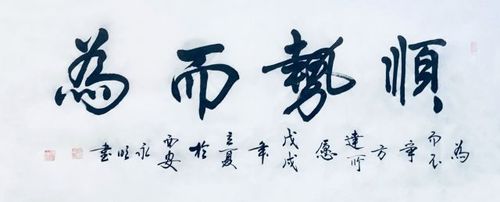 順勢而為
為而不争方達所愿戊戌年立夏於西安永書